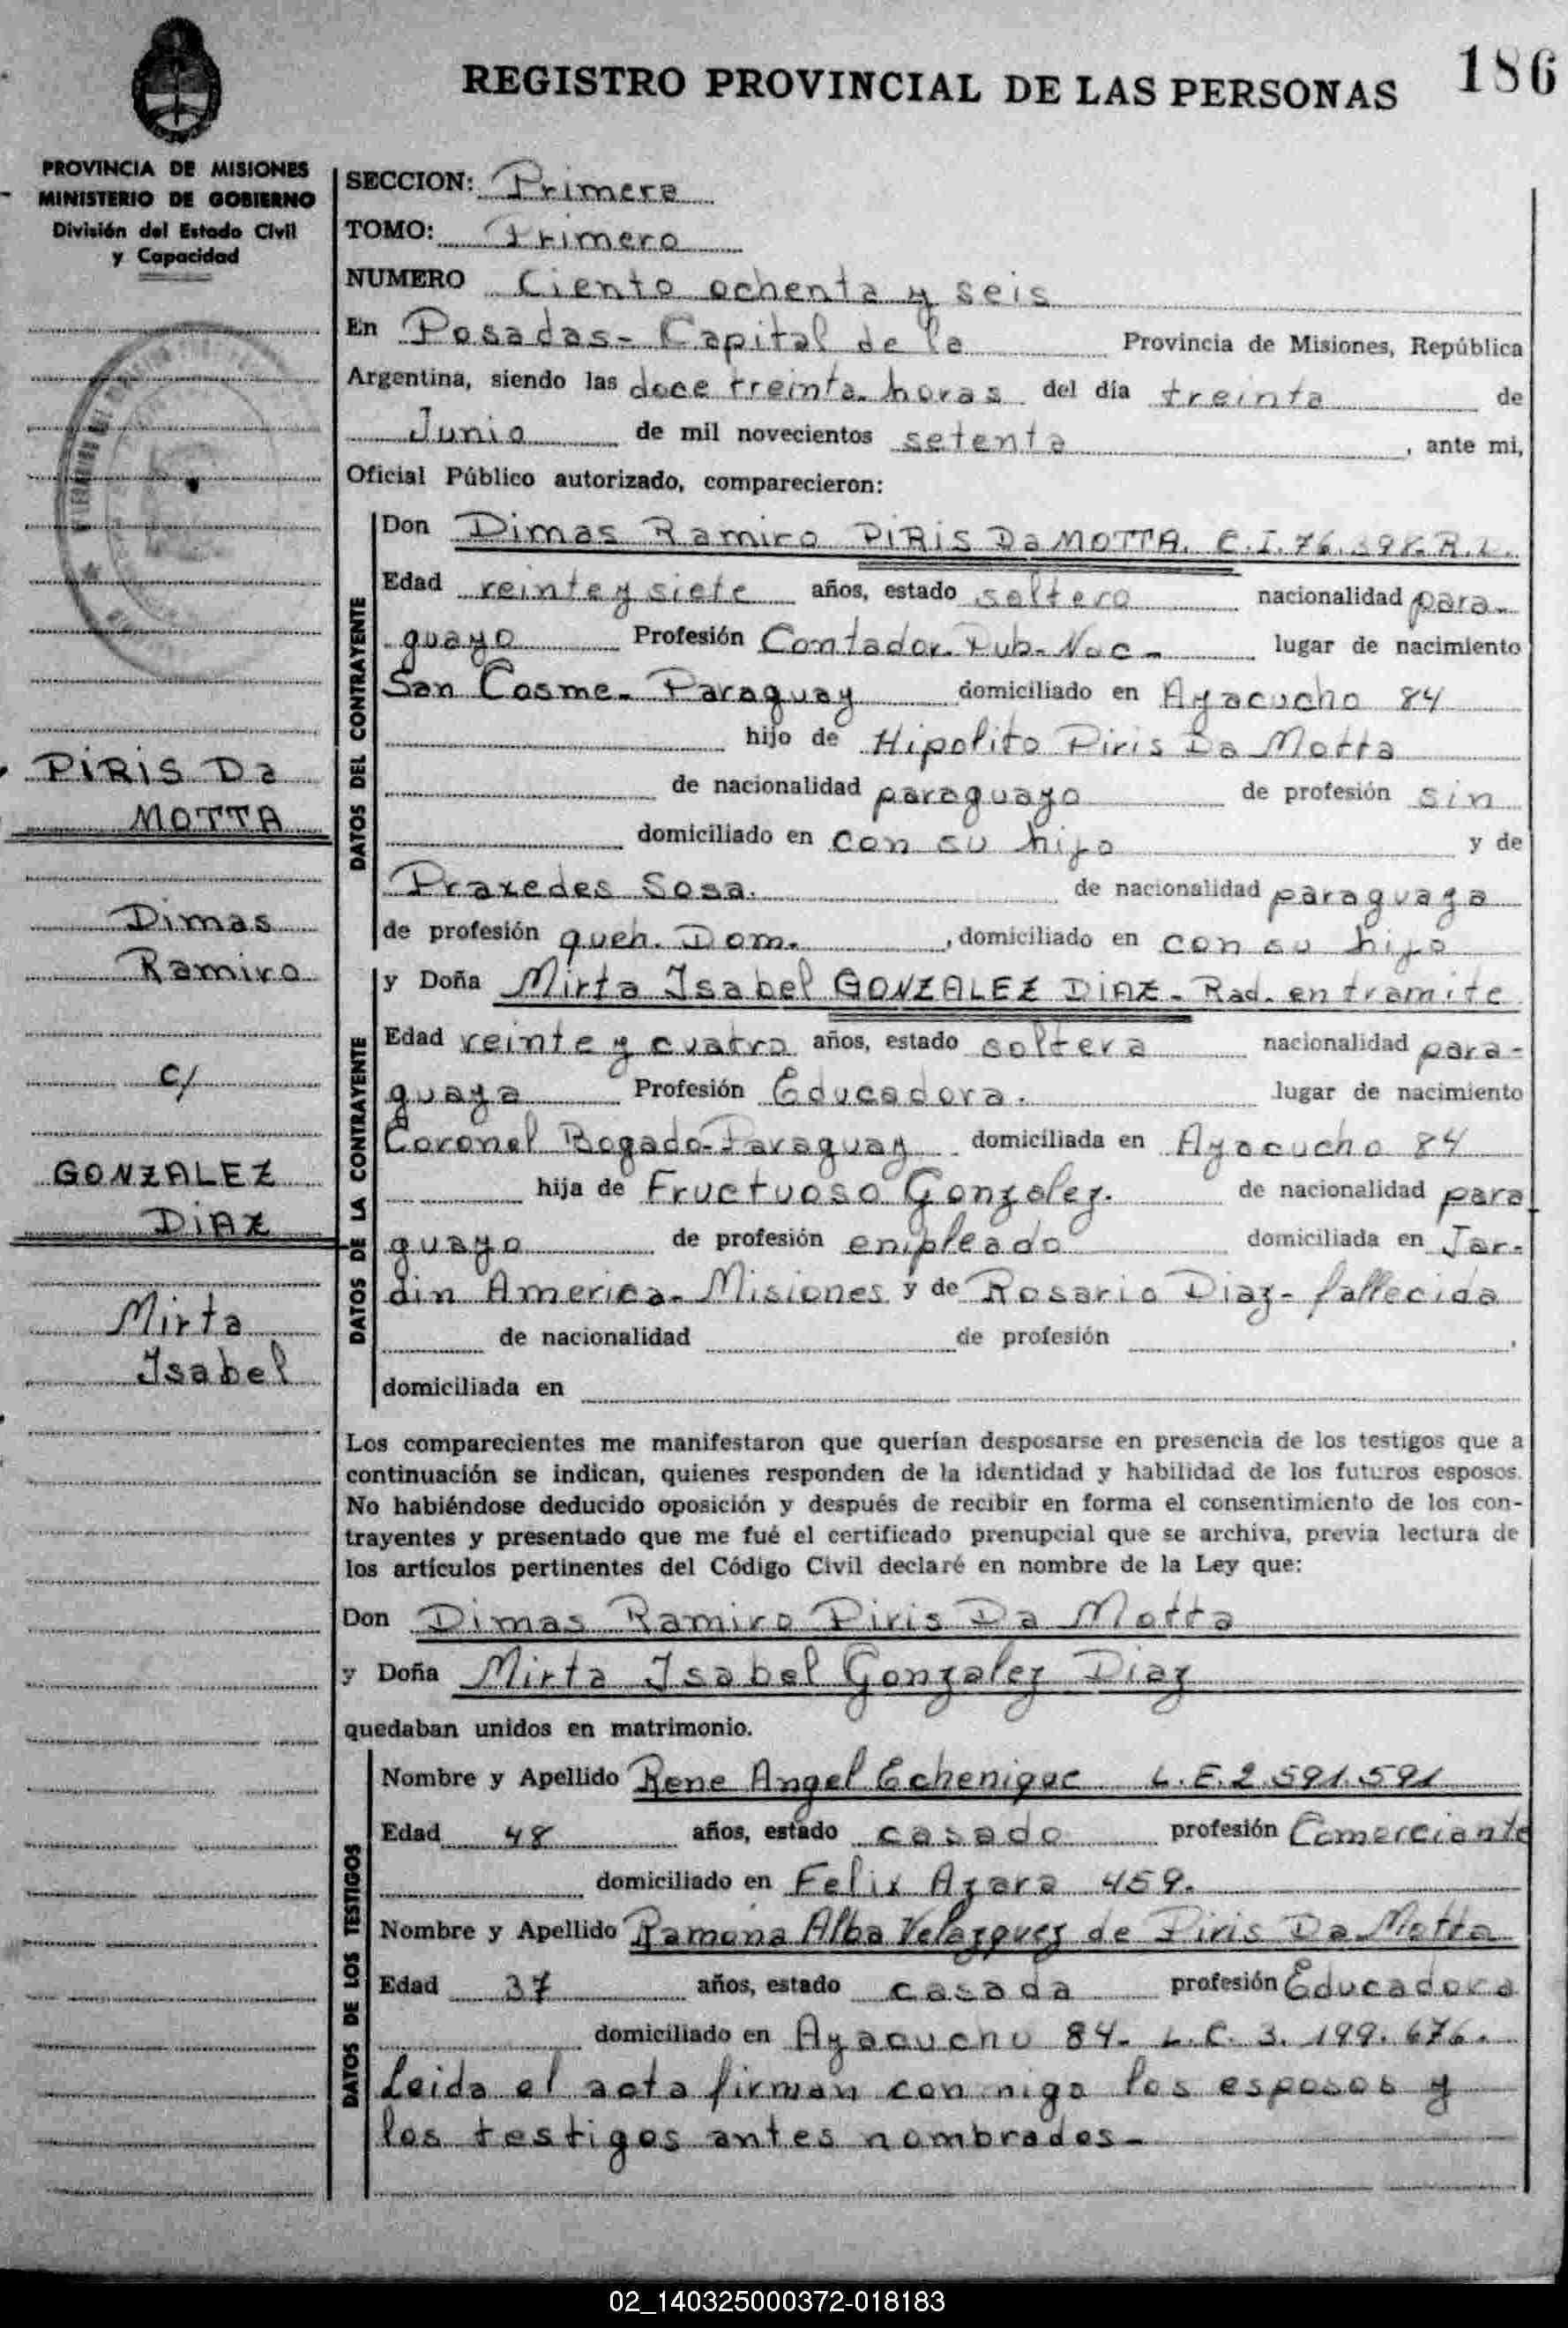 186
REGISTRO PROVINCIAL DE LAS PERSONAS
PROVINCIA DE MISIONES
MINISTERIO DE GOBIERNO
División del Estado Civil
y Capacidad
PIRIS Da
MOTTA
Dimas
Ramiro
c/
GONZALEZ
DIAZ
Mirta
Isabel
SECCION: Primera
TOMO: Primero
NUMERO Ciento ochenta y seis
En Posadas- Capital de la Provincia de Misiones, República
Argentina, siendo las doce treinta horas del día treinta de
Junio de mil novecientos setenta, ante mi,
Oficial Público autorizado, comparecieron:
DATOS DEL CONTRAYENTE
Don Dimas Ramiro PIRIS Da MOTTA. C.I. 76.398. R.L.
Edad veinte y siete años, estado soltero nacionalidad para-
guayo Profesión Contador Pub. Nac- lugar de nacimiento
San Cosme- Paraguay domiciliado en Ayacucho 84
hijo de Hipolito Piris Da Motta
de nacionalidad paraguayo de profesión sin
domiciliado en con su hijo y de
Praxedes Sosa. de nacionalidad paraguaya
de profesión queh. Dom. , domiciliado en con su hijo
DATOS DE LA CONTRAYENTE
y Doña Mirta Isabel GONZALEZ DIAZ- Rad. en tramite
Edad veinte y cuatro años, estado soltera nacionalidad para-
guaya Profesión Educadora. lugar de nacimiento
Coronel Bogado-Paraguay domiciliada en Ayacucho 84
hija de Fructuoso Gonzalez. de nacionalidad para
guayo de profesión empleado domiciliada en Jar-
din America- Misiones y de Rosario Diaz- fallecida
de nacionalidad de profesión
domiciliada en
Los comparecientes me manifestaron que querían desposarse en presencia de los testigos que a
continuación se indican, quienes responden de la identidad y habilidad de los futuros esposos.
No habiéndose deducido oposición y después de recibir en forma el consentimiento de los con-
trayentes y presentado que me fué el certificado prenupcial que se archiva, previa lectura de
los artículos pertinentes del Código Civil declaré en nombre de la Ley que:
Don Dimas Ramiro Piris Da Motta
y Doña Mirta Isabel Gonzalez Diaz
quedaban unidos en matrimonio.
DATOS DE LOS TESTIGOS
Nombre y Apellido Rene Angel Echenique L.E. 2.591.591
Edad 48 años, estado casado profesión Comerciante
domiciliado en Felix Azara 459.
Nombre y Apellido Ramona Alba Velazquez de Piris Da Motta
Edad 37 años, estado casada profesión Educadora
domiciliado en Ayacucho 84- L.C. 3.199.676.
Leida el acta firman con migo los esposos y
los testigos antes nombrados-
02_140325000372-018183